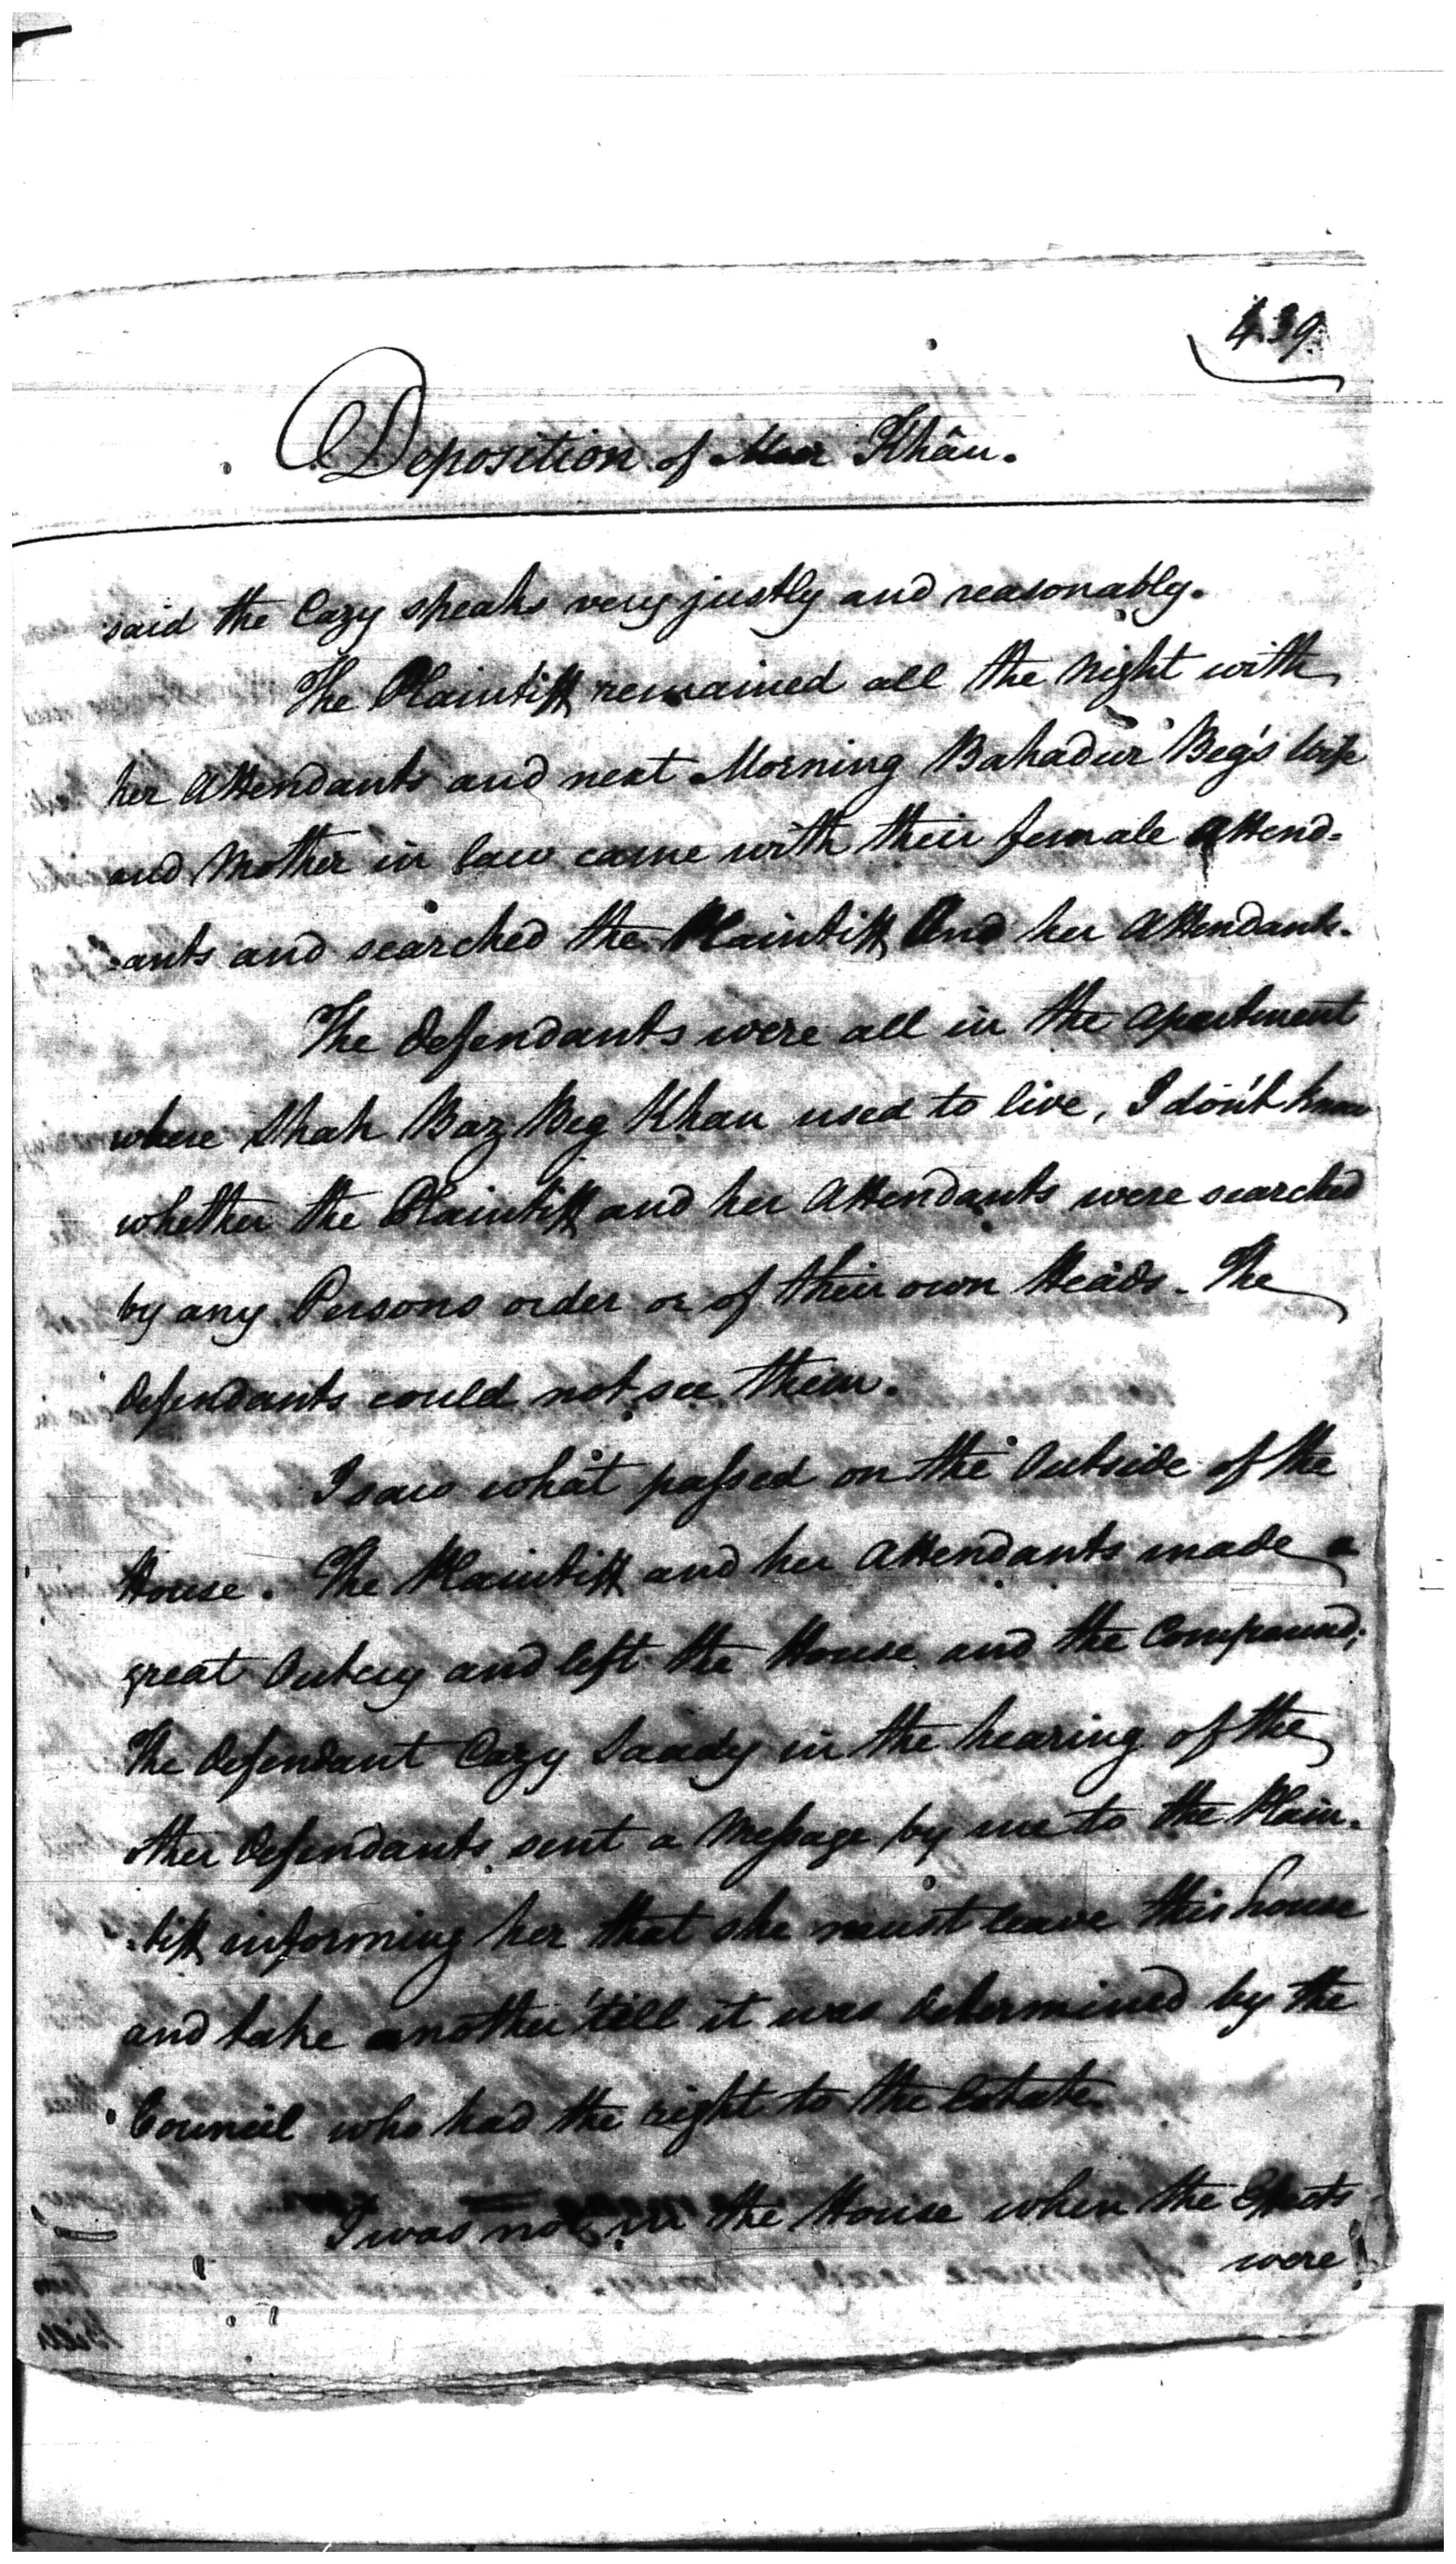 439
Deposition of Meer Khân.
said the Cazy speaks very justly and reasonably.
The Plaintiff remained all the Night with
her Attendants and next Morning Bahadur Beg's Wife
and Mother in law came with their female Attend=
=ants and searched the Plaintiff And her Attendants.
The Defendants were all in the Apartment
where Shah Baz Beg Khan used to live, I don't know
whether the Plaintiff and her Attendants were searched
by any Persons order or of their own Heads. The
Defendants could not see them.
I saw what passed on the Outside of the
House. The Plaintiff and her Attendants made a
great Outcry and left the House and the Compound;
The Defendant Cazy Saady in the hearing of the
other Defendants sent a Message by me to the Plain=
=tiff informing her that she must leave this house
and take another 'till it was determined by the
Council who had the right to the Estate.
I was not in the House when the Effects
were